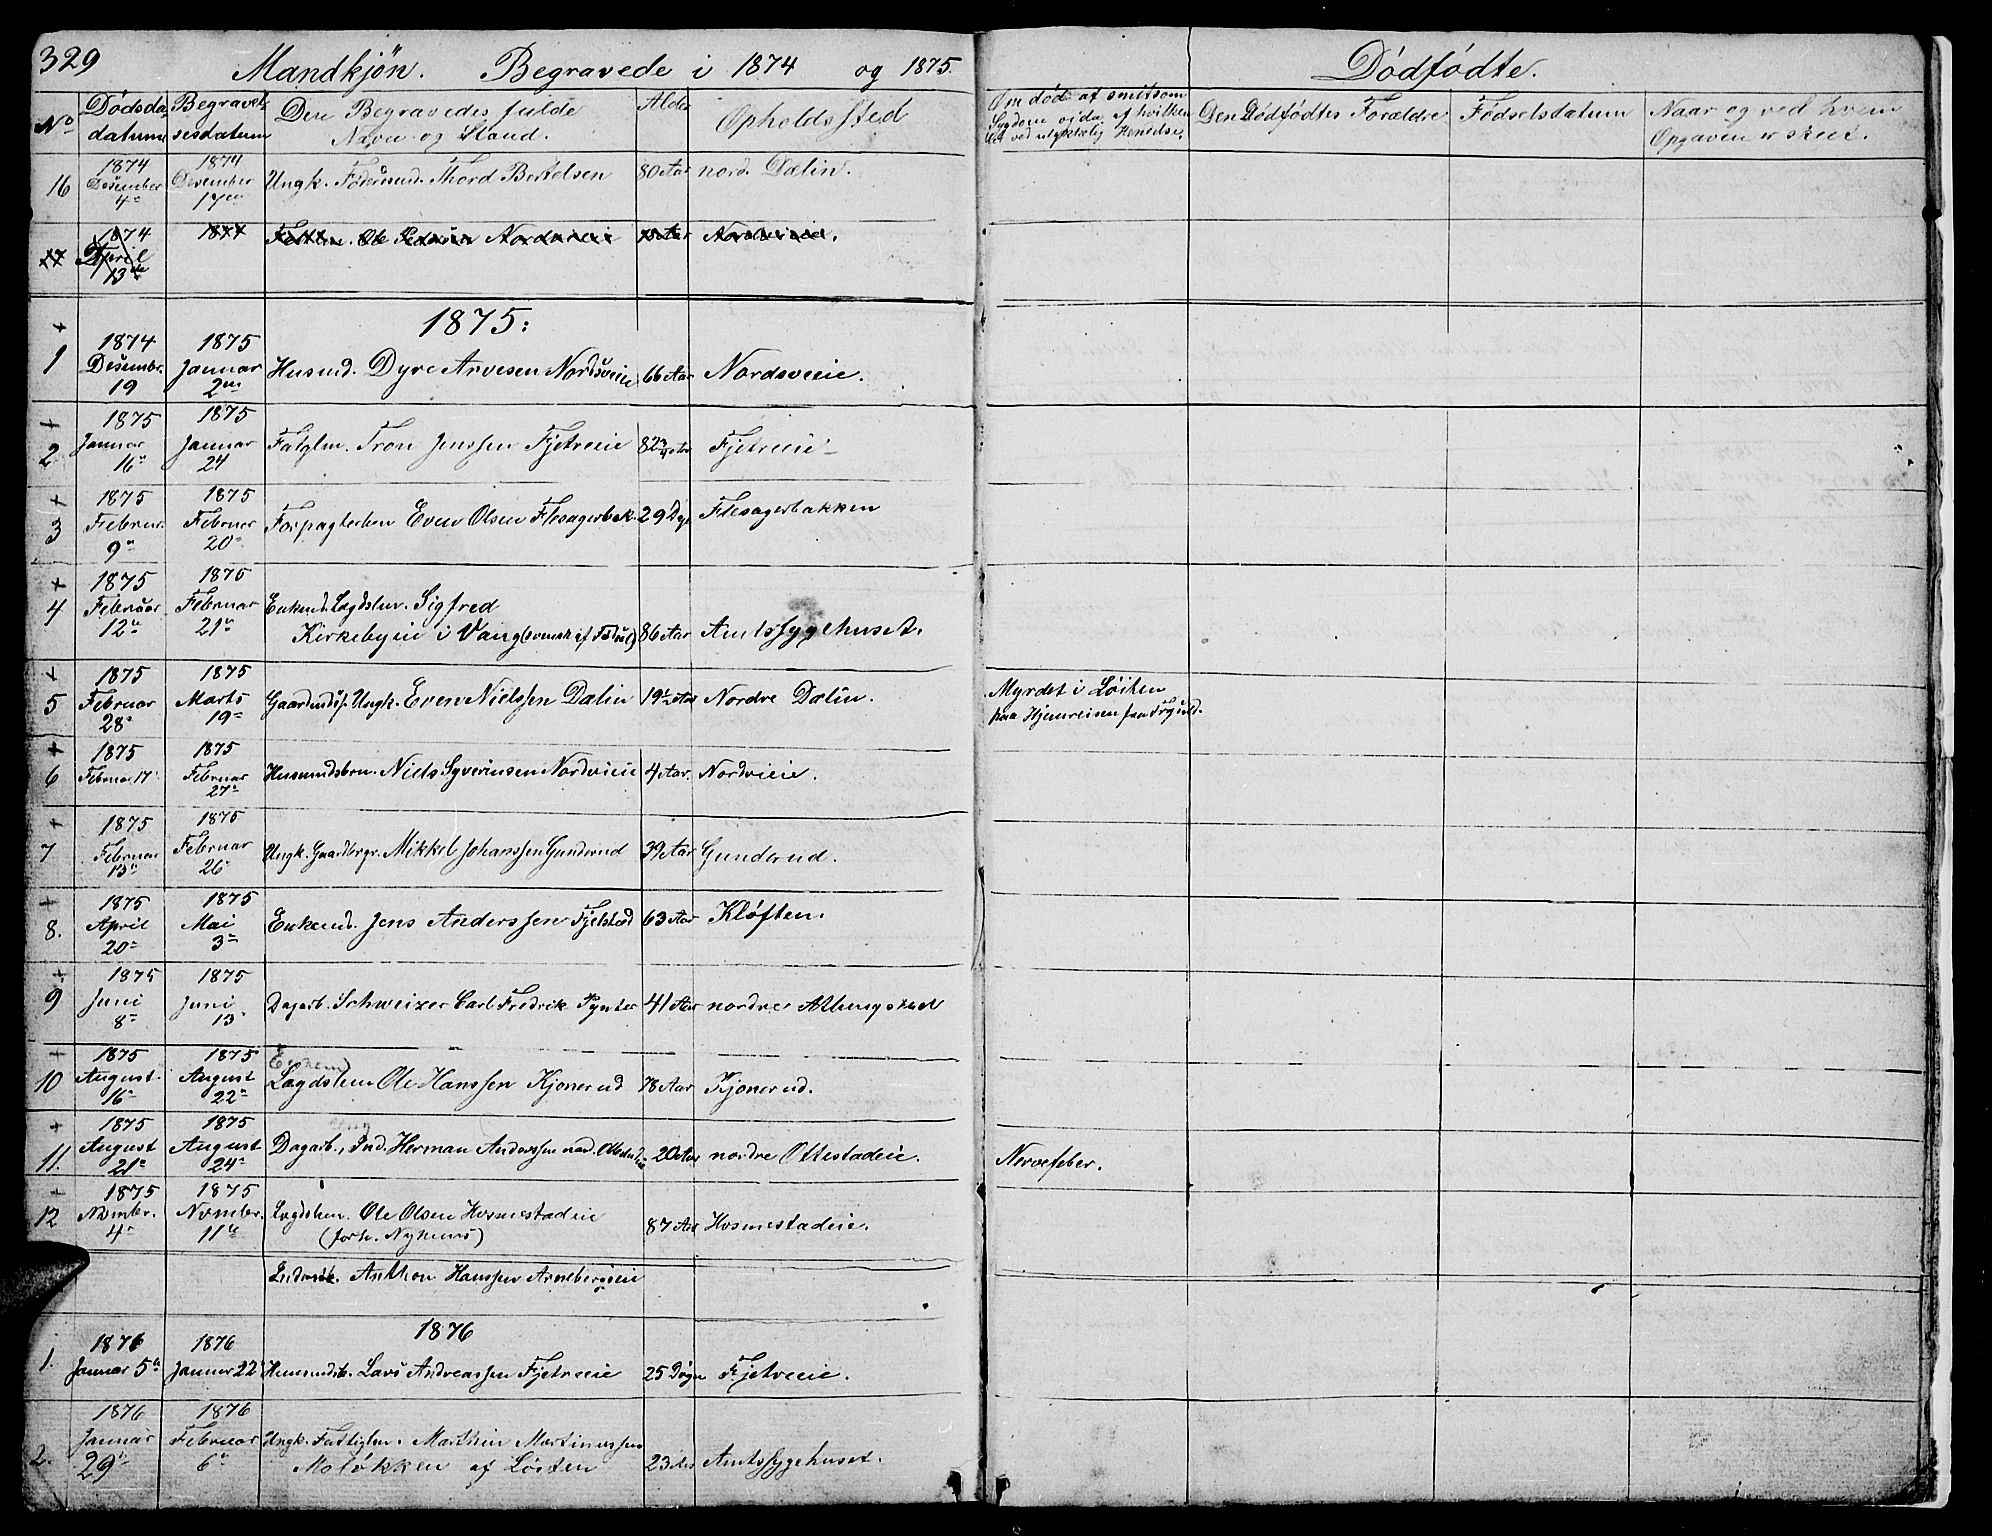 329
Mandkjön. Begravede i 1874 og 1875.
Dødfødte.
No
Dødsda- datum
Begravel- sesdatum
Den Begravedes fulde Navn og Stand.
Alder
Opholdssted
Om død af smitsom Sygdom og da af hvilken
ved ulykkelig Hendelse.
Den Dødfødtes Forældre
Fødselsdatum
Naar og ved hvem
Opgaven er skeet.
16 1874 Desember 4e 1874 Desember 17en Ungk. Føderaad. Thord Bertelsen 80 Aar nord. Dælin.
17 1874 April 13de 1874 Ole Pedersen Nordsveeie Nordsveeie.
1875:
1 1874 Desembr. 19 1875 Januar 2en Husmd. Dyre Arvesen Nordsveiie 66 Aar Nordsveiie.
2 1875 Januar 16e 1875 Januar 24 Fatglm. Tron Jenssen Fjetreeie 82 Aar Fjetreeie
3 1875 Februar. 9e 1875 Februar 20e Forpagterbrn Even Olsen Flesagerbak. 29 Dg. Flesagerbakken
4 1875 Februar 12e 1875 Februar 21e Enkmd. Lægdslm. Sigfred
Kirkebyeie i Vang 86 Aar Amtssygehuset.
5 1875 Februar 28e 1875 Marts 19e Gaardmds. Ungk. Even Nielssen Dælin 19½ Aar Nordre Dælin. Myrdet i Løiten
paa Hjemreisen fra
6 1875 Februar 17 1875 Februar 27e Husmandsbrn. Niels Syverinsen Nordvieie 4 Aar. Nordvieie.
7 1875 Februar 13e 1875 Februar 26e Ungk. Gaardbrgr. Mikkel Johanssen Gunderud 39 Aar Gunderud.
8. 1875 April 20e 1875 Mai 3e Enkemd. Jens Anderssen Fjelstad 63 Aar Kløften.
9 1875 Juni 8e 1875 Juni 13e Dagarb. Schweizer Carl Fredrik Pynter 41 Aar nordre
Enkem)
10 1875 August 16e 1875 August 22e Lægdslem Ole Hanssen Kjonerud 78 Aar Kjonerud.
11. 1875 August 21e 1875 August 24e Dagarb., Ind. Herman Anderssen nord. 20 Aar nordre Ottestadeie. Nervefeber.
12 1875 Novembr. 4e 1875 Novembr. 11te Lægdslem. Ole Olsen Hosmestadeie 87 Aar Hosmestadeie.
(forh. Nykuus)
Inderstb. Anthon Hanssen Arnebergseie
1876
1. 1876 Januar 5e 1876 Januar 22 Husmandsb. Lars Andreassen Fjetreeie 25 Døgn Fjetreeie.
2. 1876 Januar 29e 1876 Februar 6e Ungk. Fattiglm. Marthin Martinussen
Moløkken af Løiten 23 Aar Amtssygehuset.